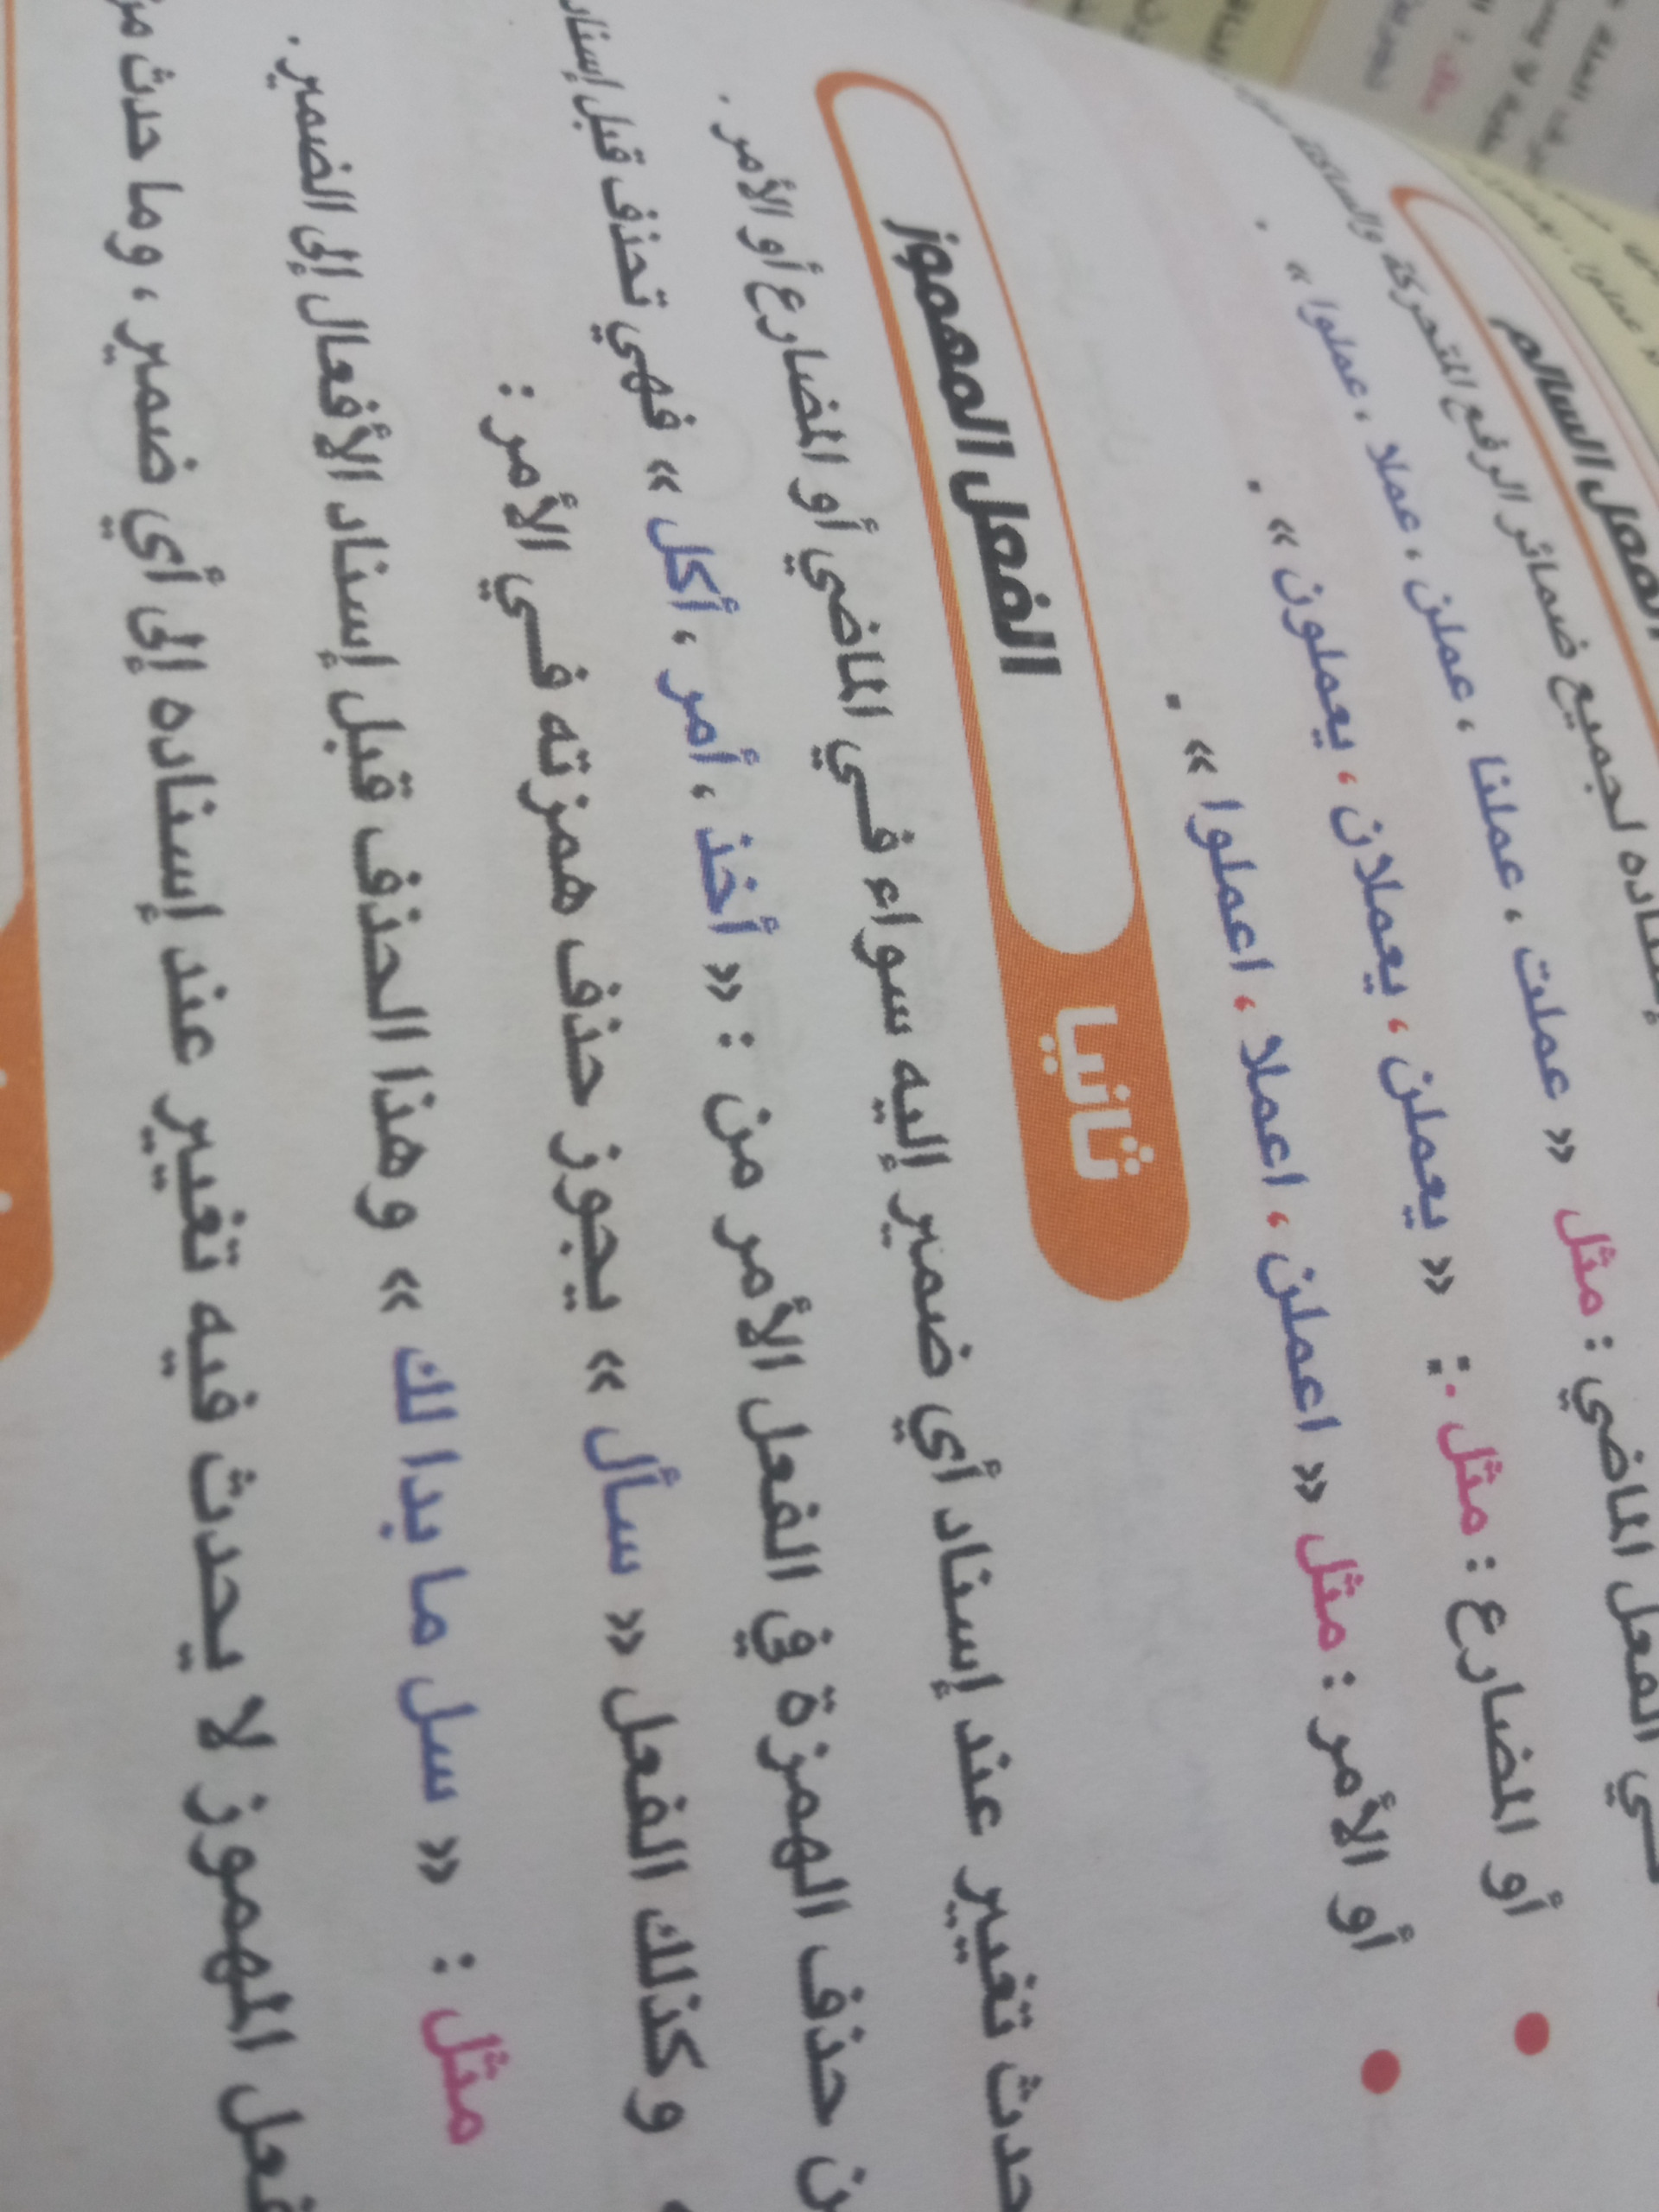 الفعل السالم
لجميع ضمائر الرفع المتحركة والساكنة
الفعل الماضي : مثل « عملت ، عملنا ، عملن ، عملا ، عملوا » .
أو المضارع : مثل : « يعملن ، يعملان ، يعملون » .
أو الأمر : مثل « اعملن ، اعملا ، اعملوا » .
ثانيا الفعل المهموز
حدث تغيير عند إسناد أي ضمير إليه سواء في الماضي أو المضارع أو الأمر .
حذف الهمزة في الفعل الأمر من : « أخذ ، أمر ، أكل » فهي تحذف قبل
وكذلك الفعل « سأل » يجوز حذف همزته في الأمر :
مثل : « سل ما بدا لك » وهذا الحذف قبل إسناد الأفعال إلى الضمير .
المهموز لا يحدث فيه تغيير عند إسناده إلى أي ضمير ، وما حدث